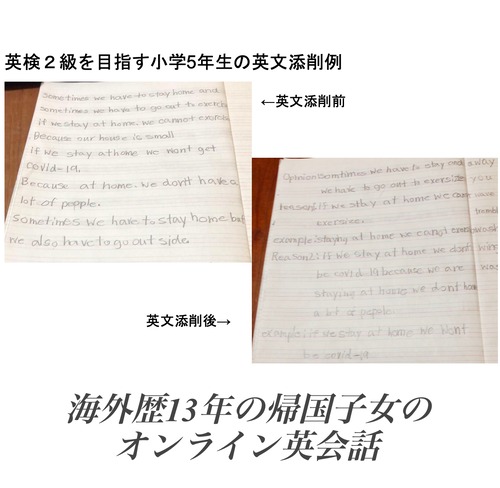 英検２級を目指す小学5年生の英文添削例
←英文添削前
sometimes we have to stay home and
sometimes we have to go out to exercise
if we stay at home. we cannot exercise
Because our house is small
if we stay at home we wont get
covid-19.
Because at home. we don't have a
lot of people.
sometimes we have to stay home but
we also have to go out side.
英文添削後→
opinion: somtimes we have to stay and
we have to go out to exersize
reason1: if we stay at home we can
exersice.
example: staying at home we can't
Reason2: if we stay at home we dont
be covid 19 because we are
staying at home we dont have
a lot of people
example: if we stay at home we wont
be covid-19
海外歴13年の帰国子女の
オンライン英会話